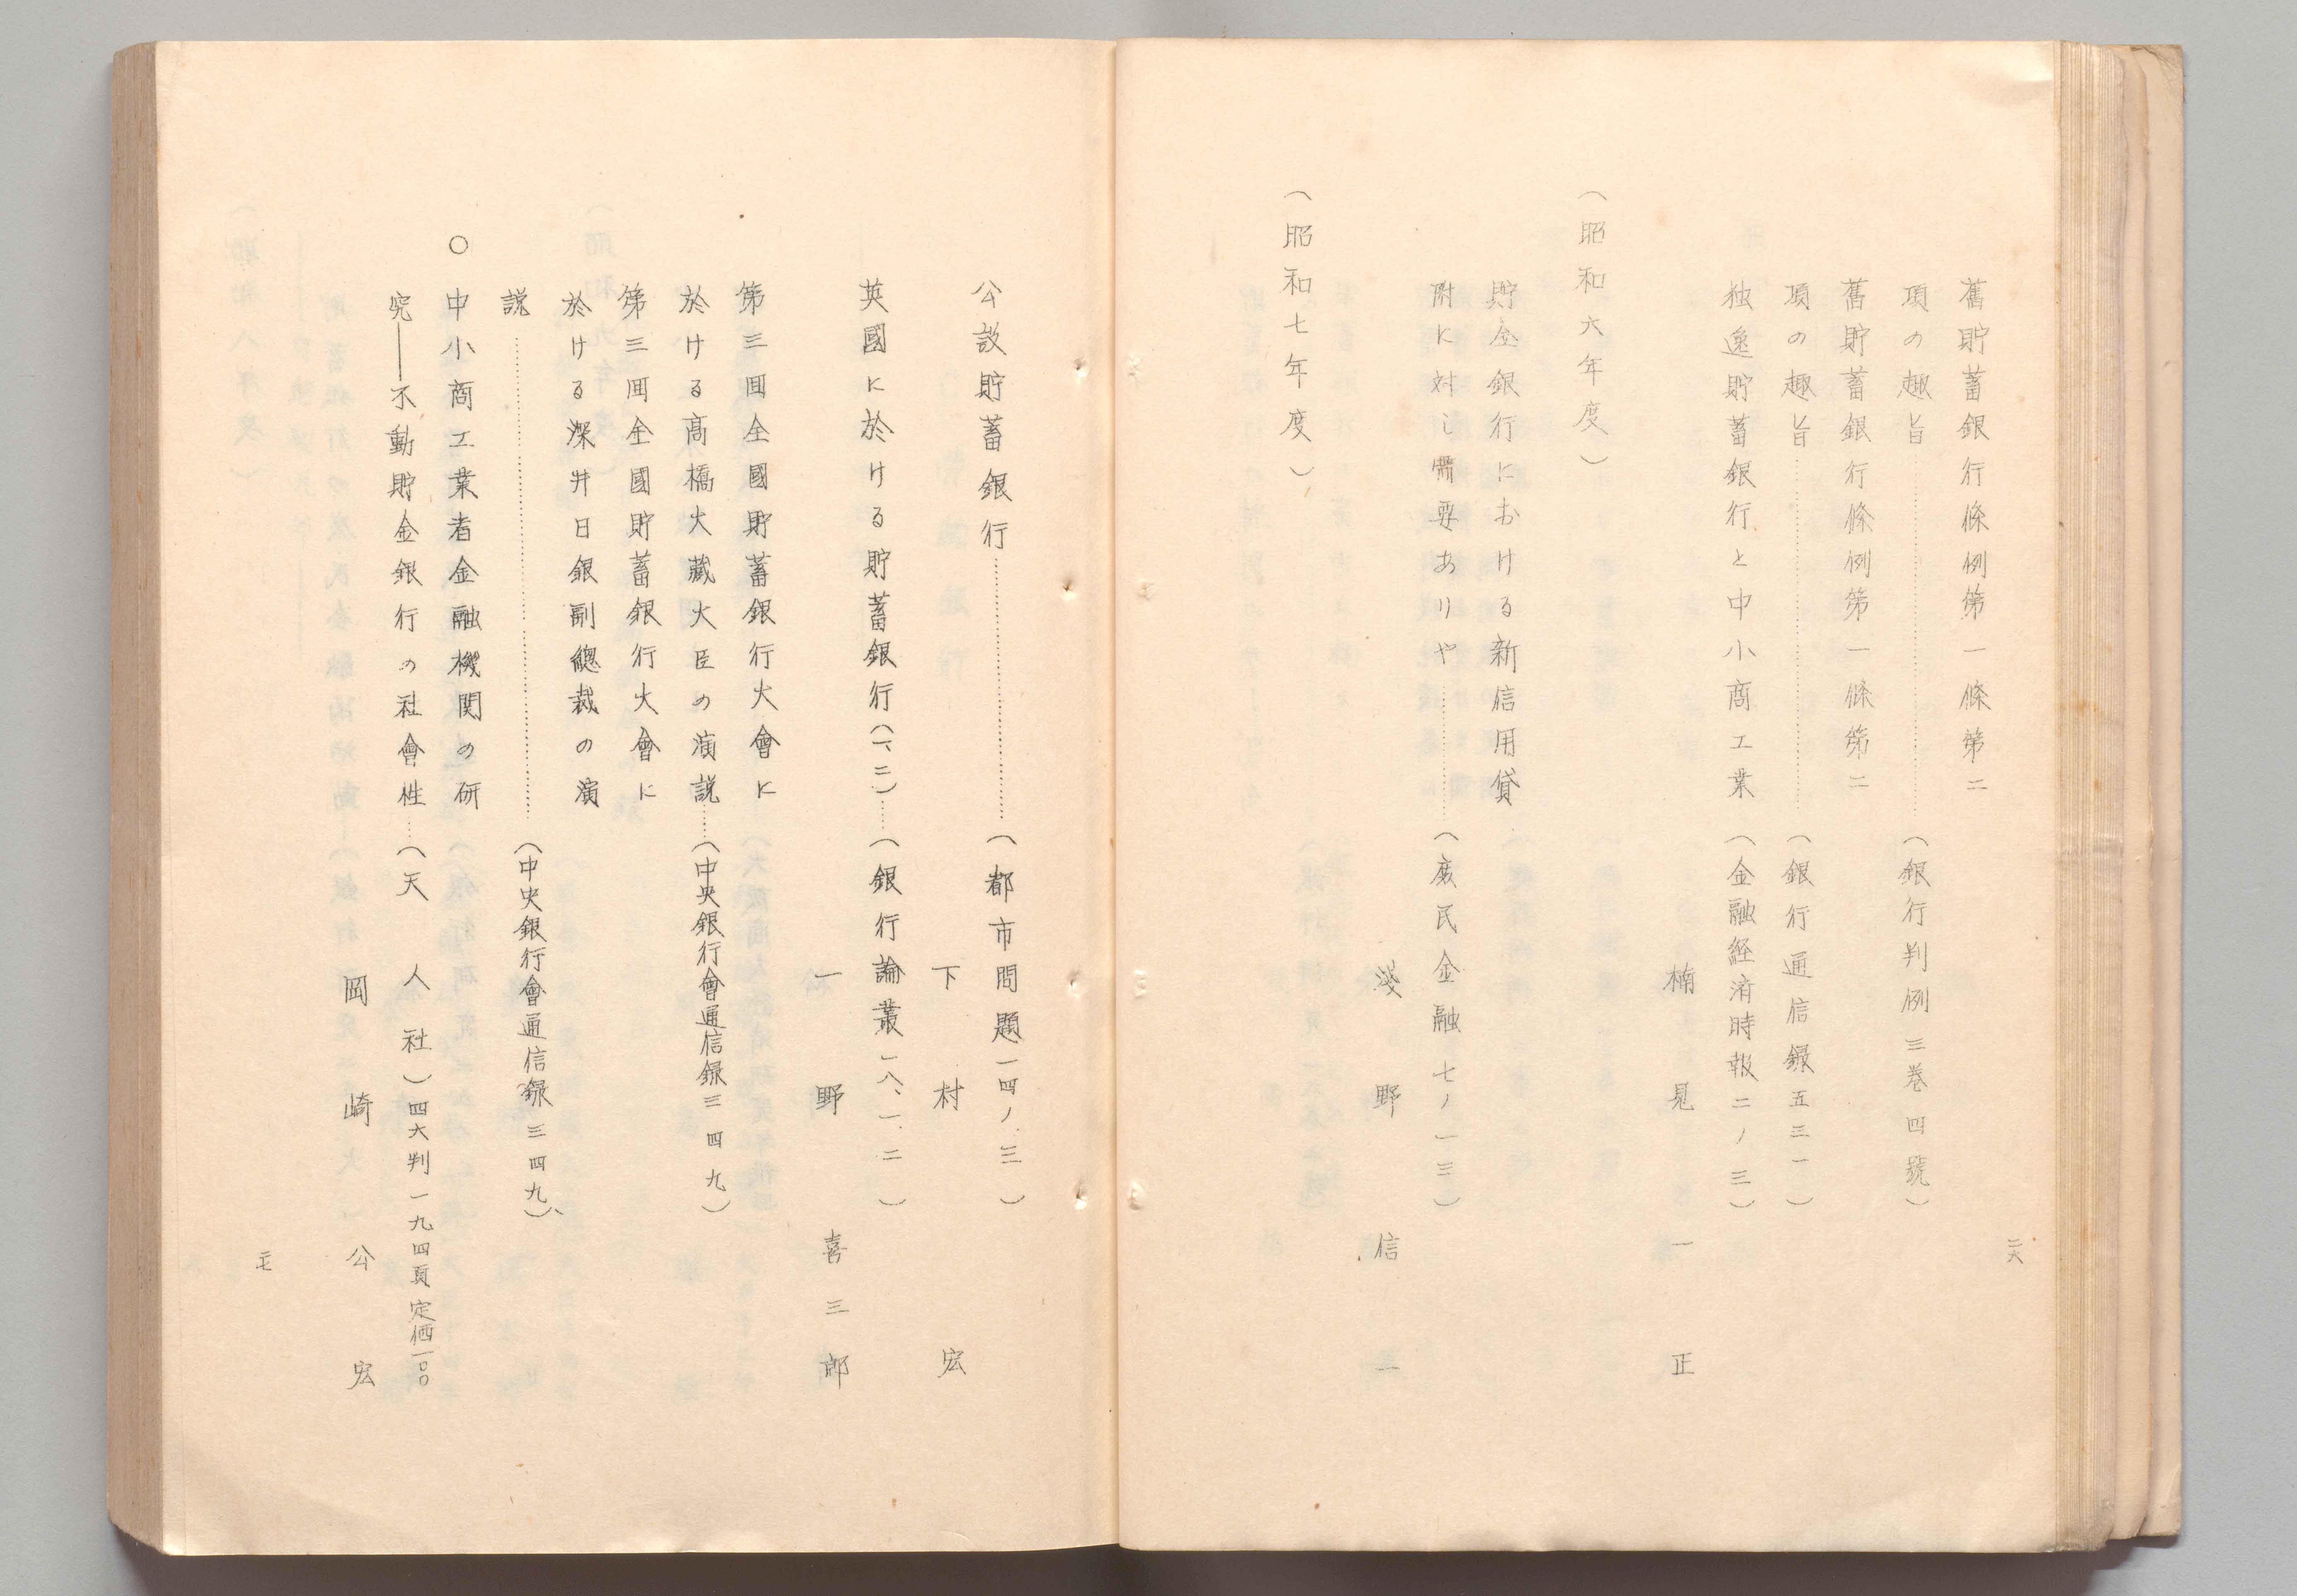 舊貯蓄銀行條例第一條第二
項の趣旨……………………（銀行判例三巻四號）
舊貯蓄銀行條例第一條第二
項の趣旨……………………（銀行通信録五三一）
独逸貯蓄銀行と中小商工業（金融経済時報二ノ三）
楠見一正
（昭和六年度）
貯金銀行における新信用貸
附に対し需要ありや…………（庶民金融七ノ一三）
淺野信一
（昭和七年度）
二六
公設貯蓄銀行……………………（都市問題一四ノ三）
下村宏
英國に於ける貯蓄銀行（一、二）……（銀行論叢一八、一、二）
一野喜三郎
第三回全國貯蓄銀行大會に
於ける高橋大藏大臣の演説……（中央銀行會通信録三四九）
第三回全國貯蓄銀行大會に
於ける深井日銀副總裁の演
説……………………………………（中央銀行會通信録三四九）、
○中小商工業者金融機関の研
究──不動貯金銀行の社會性…（天人社）四六判一九四頁定価一〇〇
岡崎公宏
二七